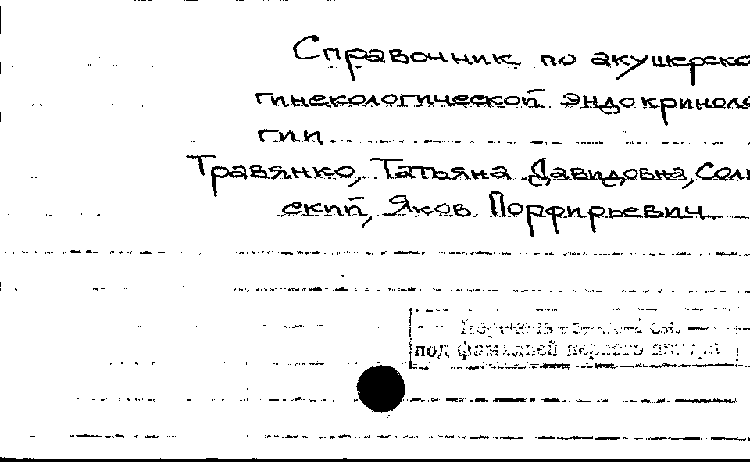 Справочник по акушерско
гинекологической эндокриноло
гии
Травянко, Татьяна Давидовна, Соль
ский, Яков Порфирьевич
под фамилией первого автора